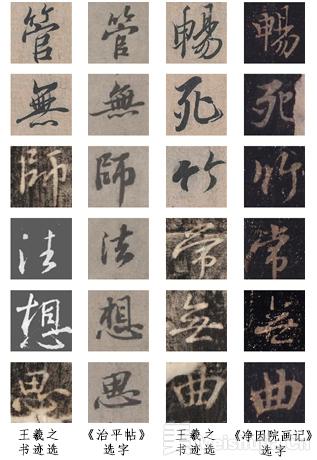 管 管 暢 暢
無 無 死 死
師 師 竹 竹
法 法 常 常
想 想 無 無
思 思 曲 曲
王羲之 《治平帖》 王羲之 《净因院画记》
书迹选 选字 书迹选 选字